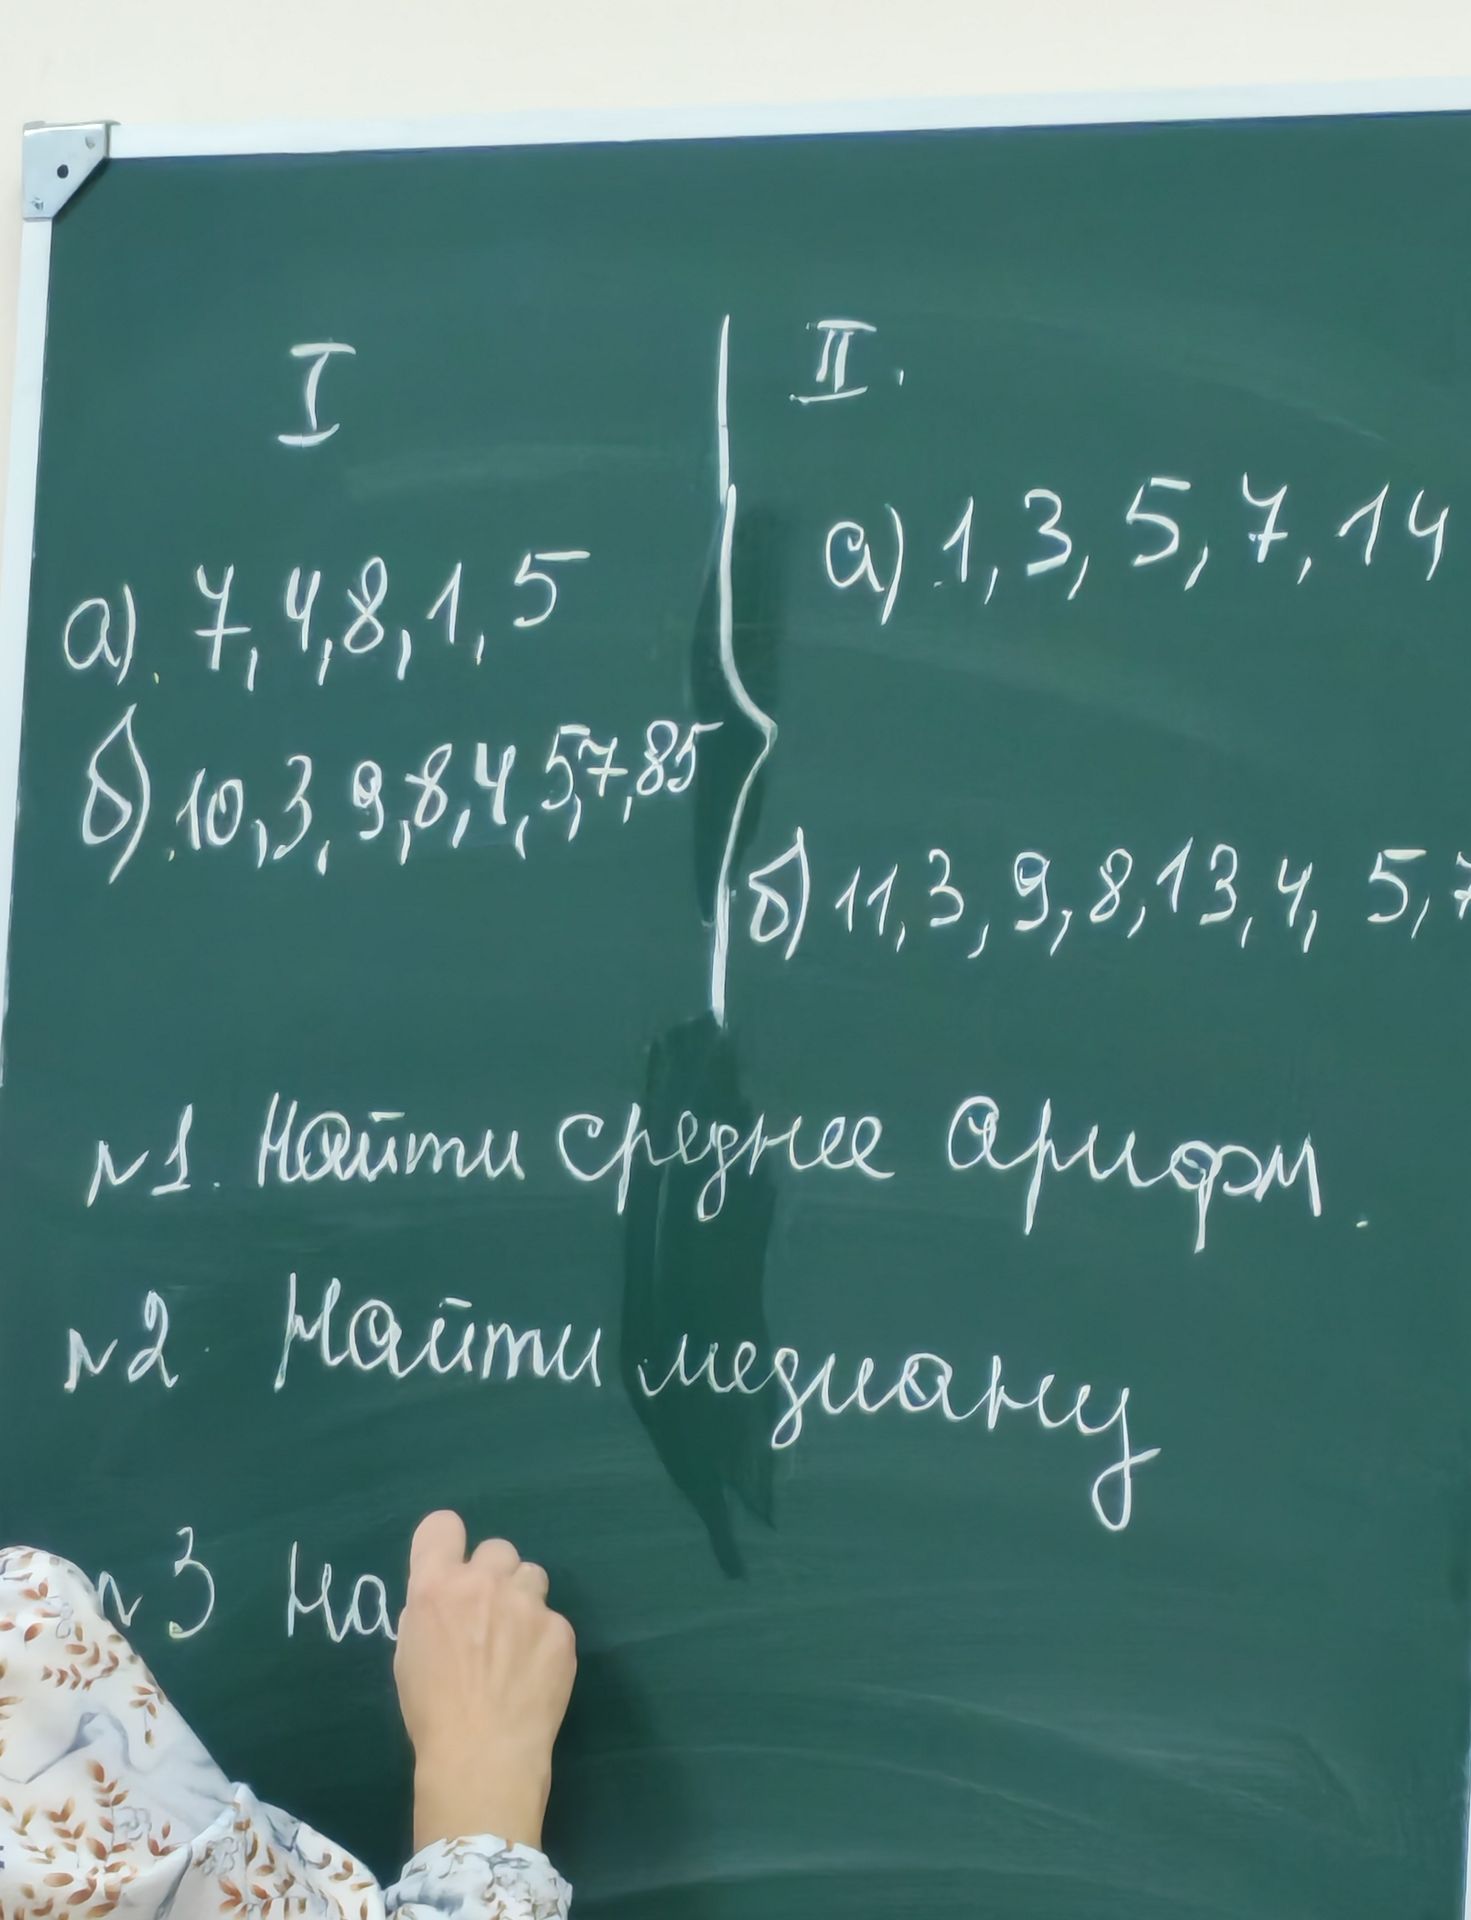 I
а) 7, 4, 8, 1, 5
б) 10, 3, 9, 8, 4, 5, 7, 85
II.
а) 1, 3, 5, 7, 14
б) 11, 3, 9, 8, 13, 4, 5, 7
№1. Найти среднее арифм.
№2. Найти медиану
№3 На